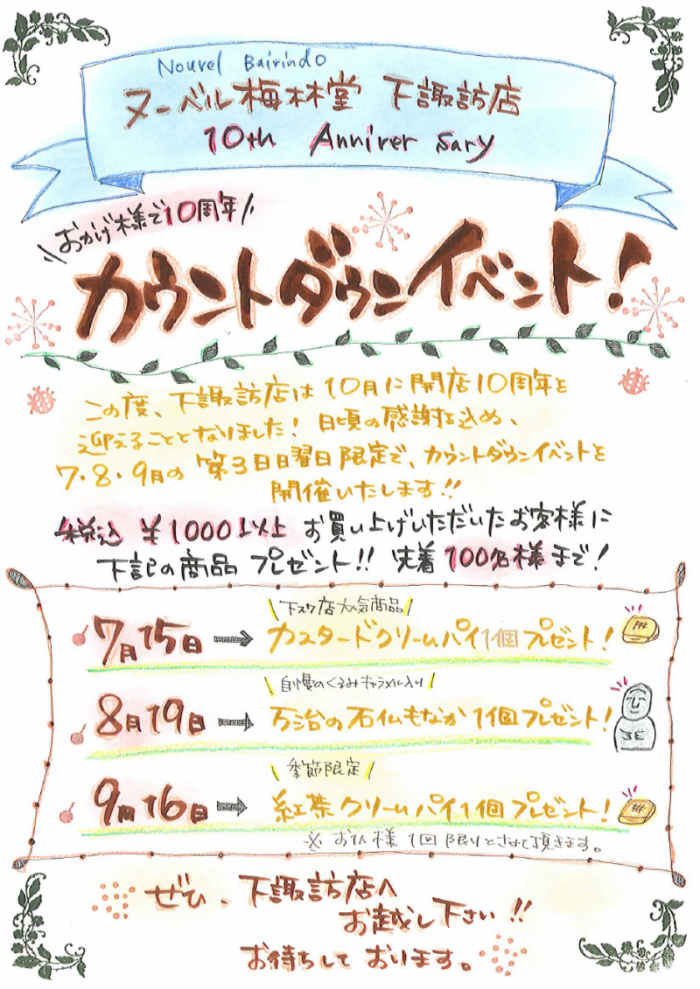 Nouvel Bairindo
ヌーベル梅林堂 下諏訪店
10th Anniversary
おかげ様で10周年
カウントダウンイベント！
この度、下諏訪店は10月に開店10周年を
迎えることとなりました！日頃の感謝を込め、
7・8・9月の第3日曜日限定で、カウントダウンイベントを
開催いたします!!
税込 ¥1000以上 お買い上げいただいたお客様に
下記の商品 プレゼント!! 先着100名様まで！
下スワ店大人気商品
7月15日 → カスタードクリームパイ1個プレゼント！
自慢のくるみキャラメル入り
8月19日 → 万治の石仏もなか1個プレゼント！
季節限定
9月16日 → 紅茶クリームパイ1個プレゼント！
※お1人様1回限りとさせて頂きます。
ぜひ、下諏訪店へ
お越し下さい!!
お待ちしております。